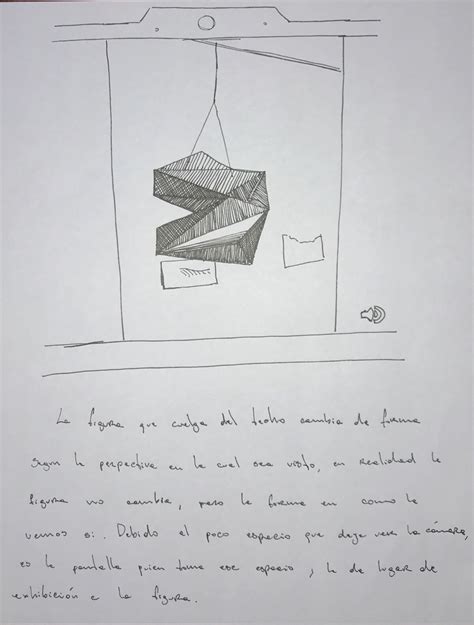 La figura que cuelga del techo cambia de forma
segun la perspectiva en la cual sea visto, en realidad la
figura no cambia, pero la forma en como la
vemos si. Debido al poco espacio que deja ver la cámara,
es la pantalla quien toma ese espacio, la de lugar de
exhibición a la figura.